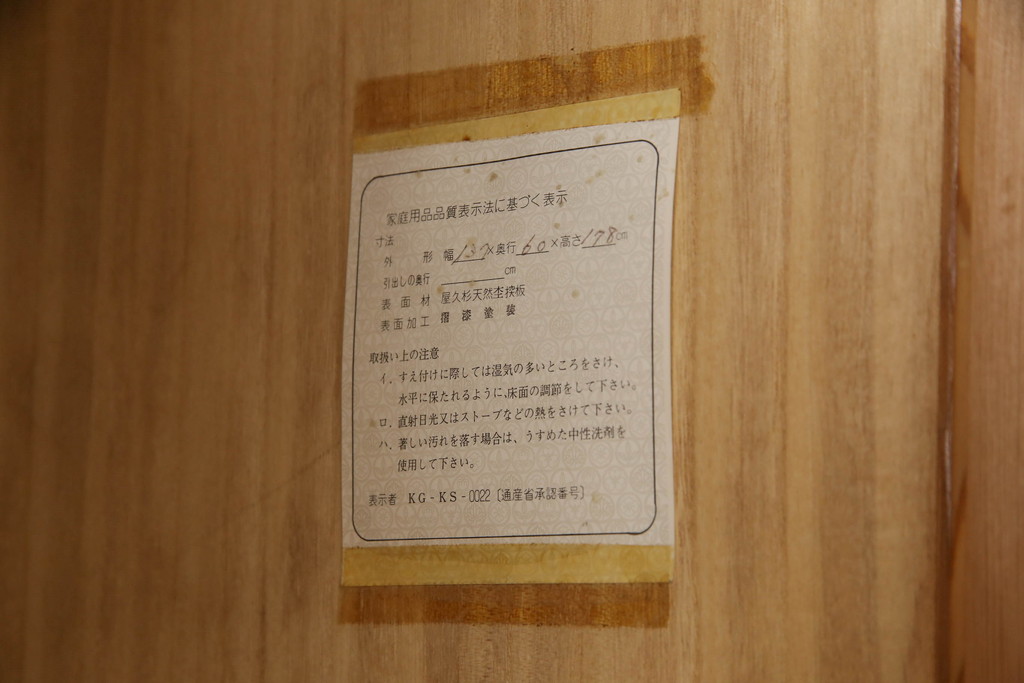 家庭用品品質表示法に基づく表示
寸法
外形 幅137×奥行60×高さ178cm
引出しの奥行 cm
表面材 屋久杉天然杢突板
表面加工 摺漆塗装
取扱い上の注意
イ. すえ付けに際しては湿気の多いところをさけ、
水平に保たれるように、床面の調節をして下さい。
ロ. 直射日光又はストーブなどの熱をさけて下さい。
ハ. 著しい汚れを落す場合は、うすめた中性洗剤を
使用して下さい。
表示者 KG-KS-0022〔通産省承認番号〕